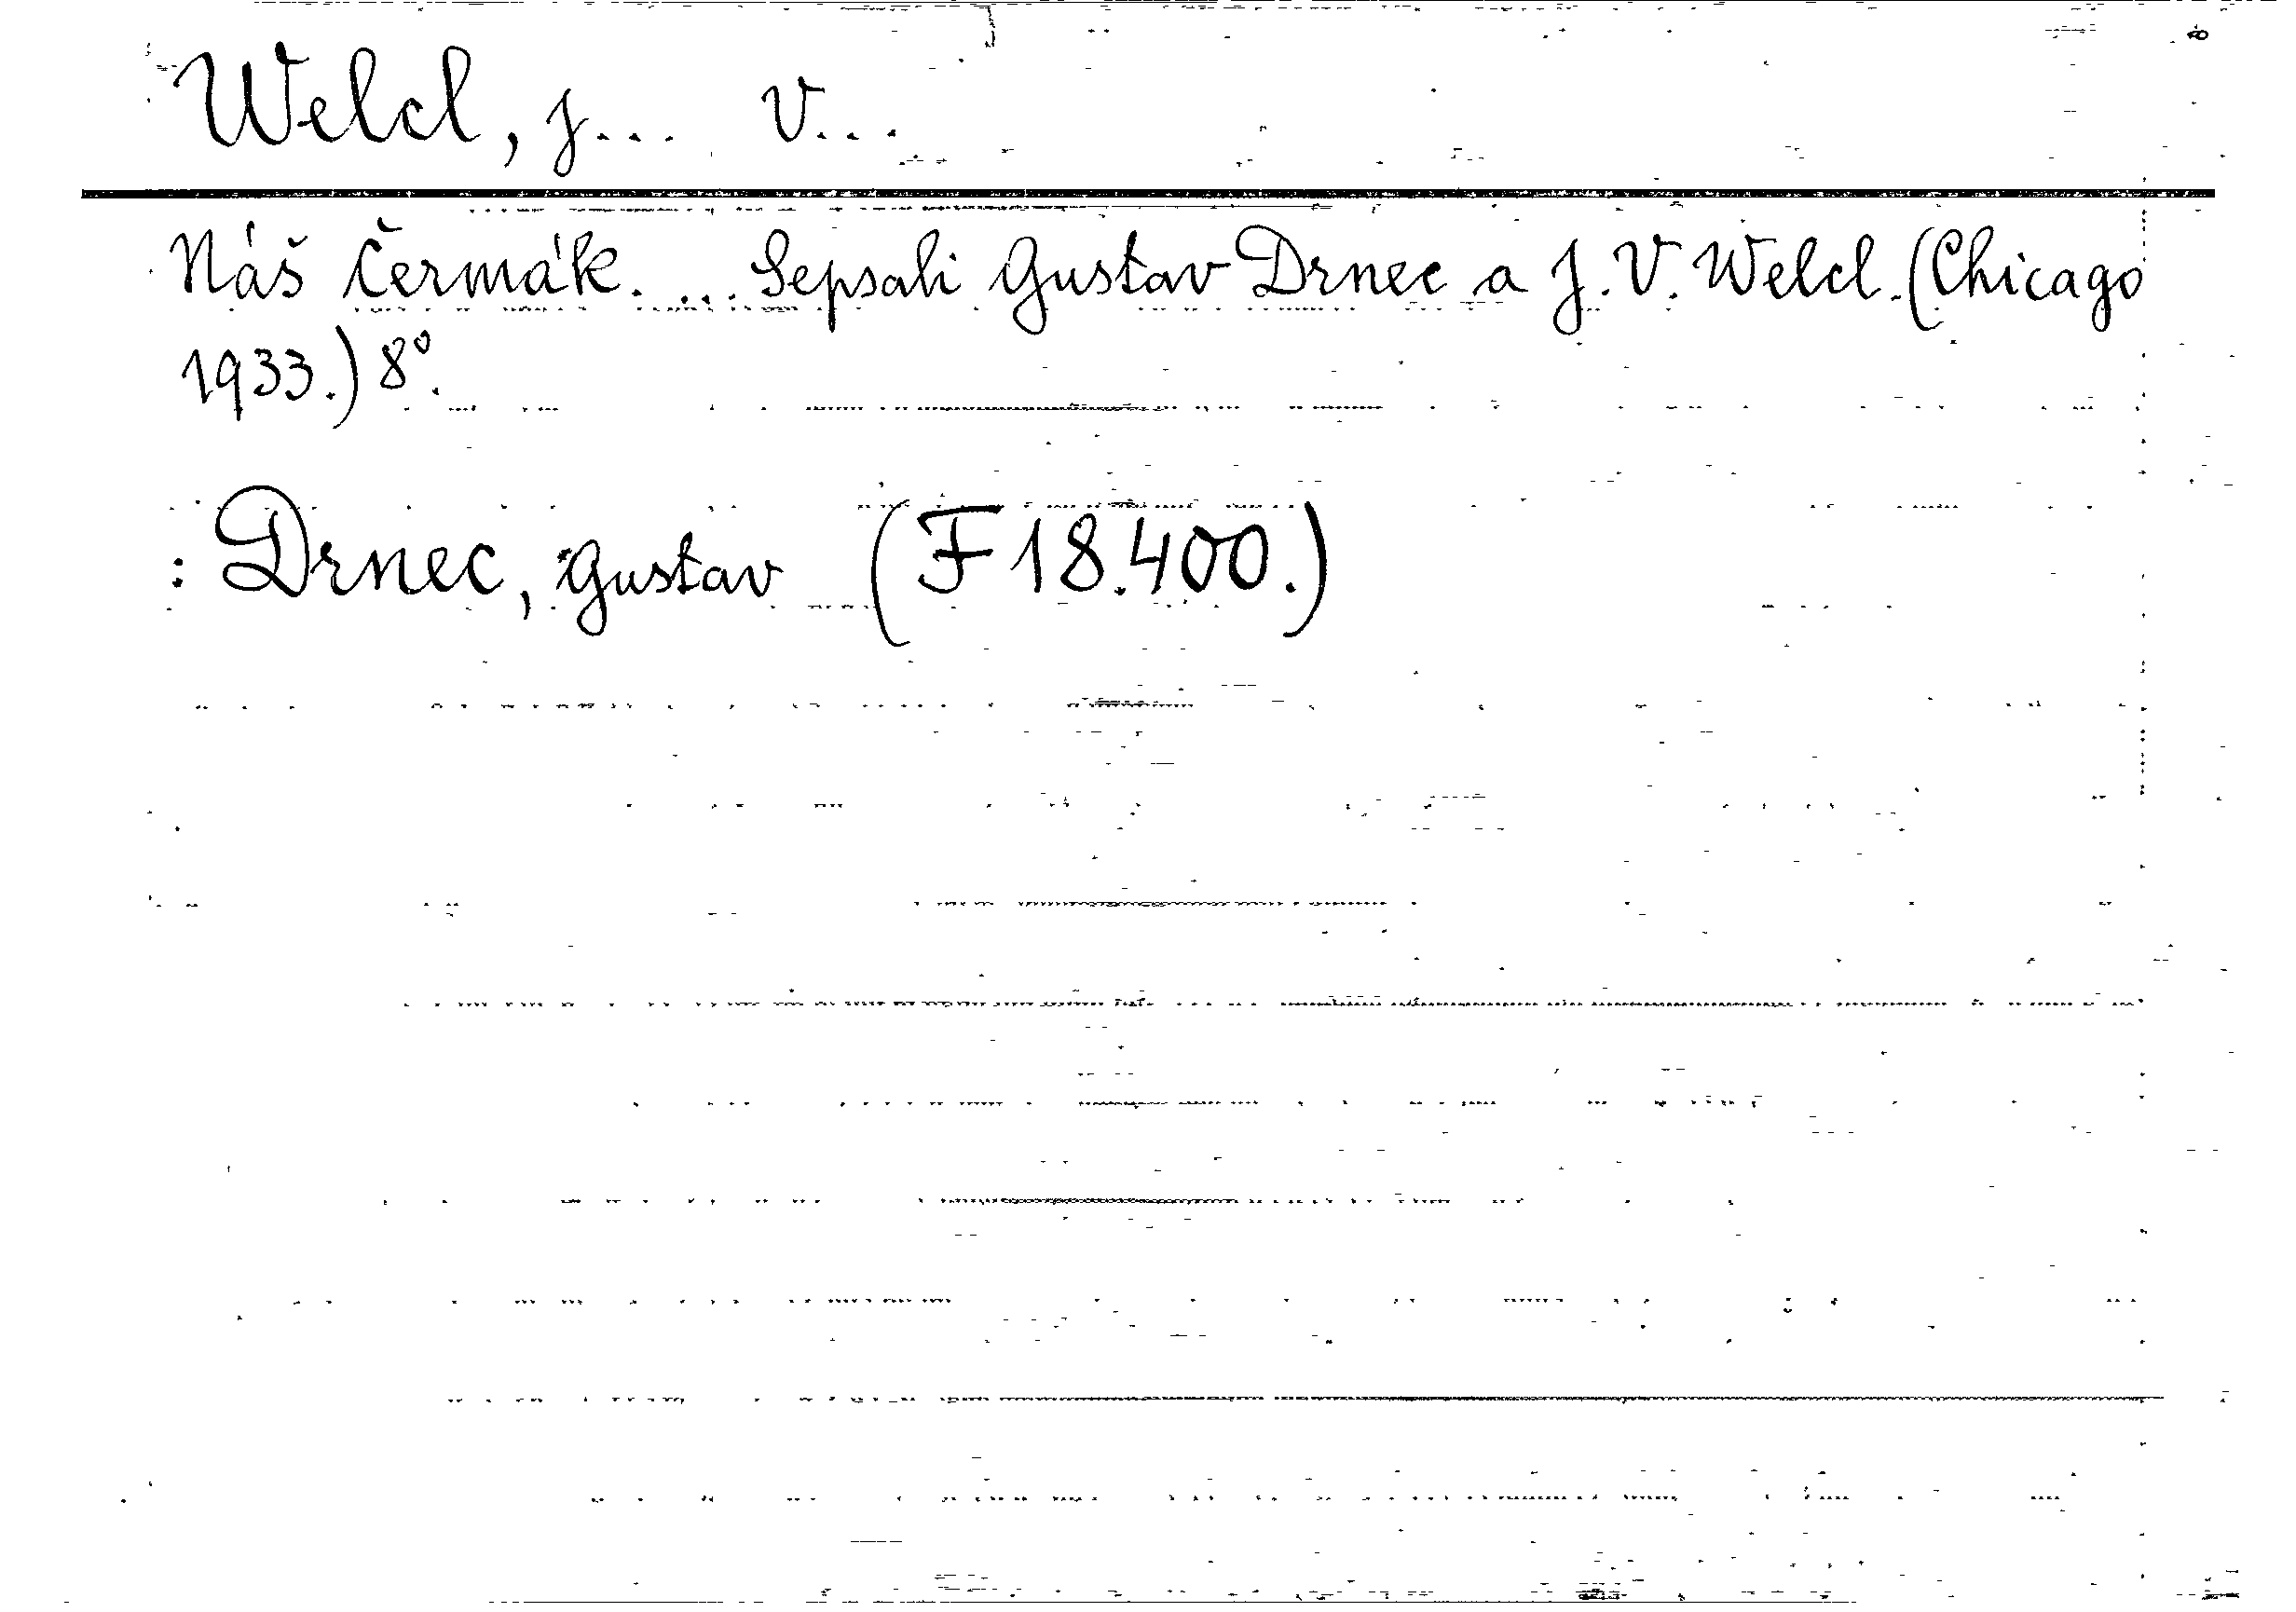 Welcl, J... V...
Náš Čermák. ... Sepsali Gustav Drnec a J. V. Welcl. (Chicago
1933.) 8°.
: Drnec, Gustav (F 18.400.)